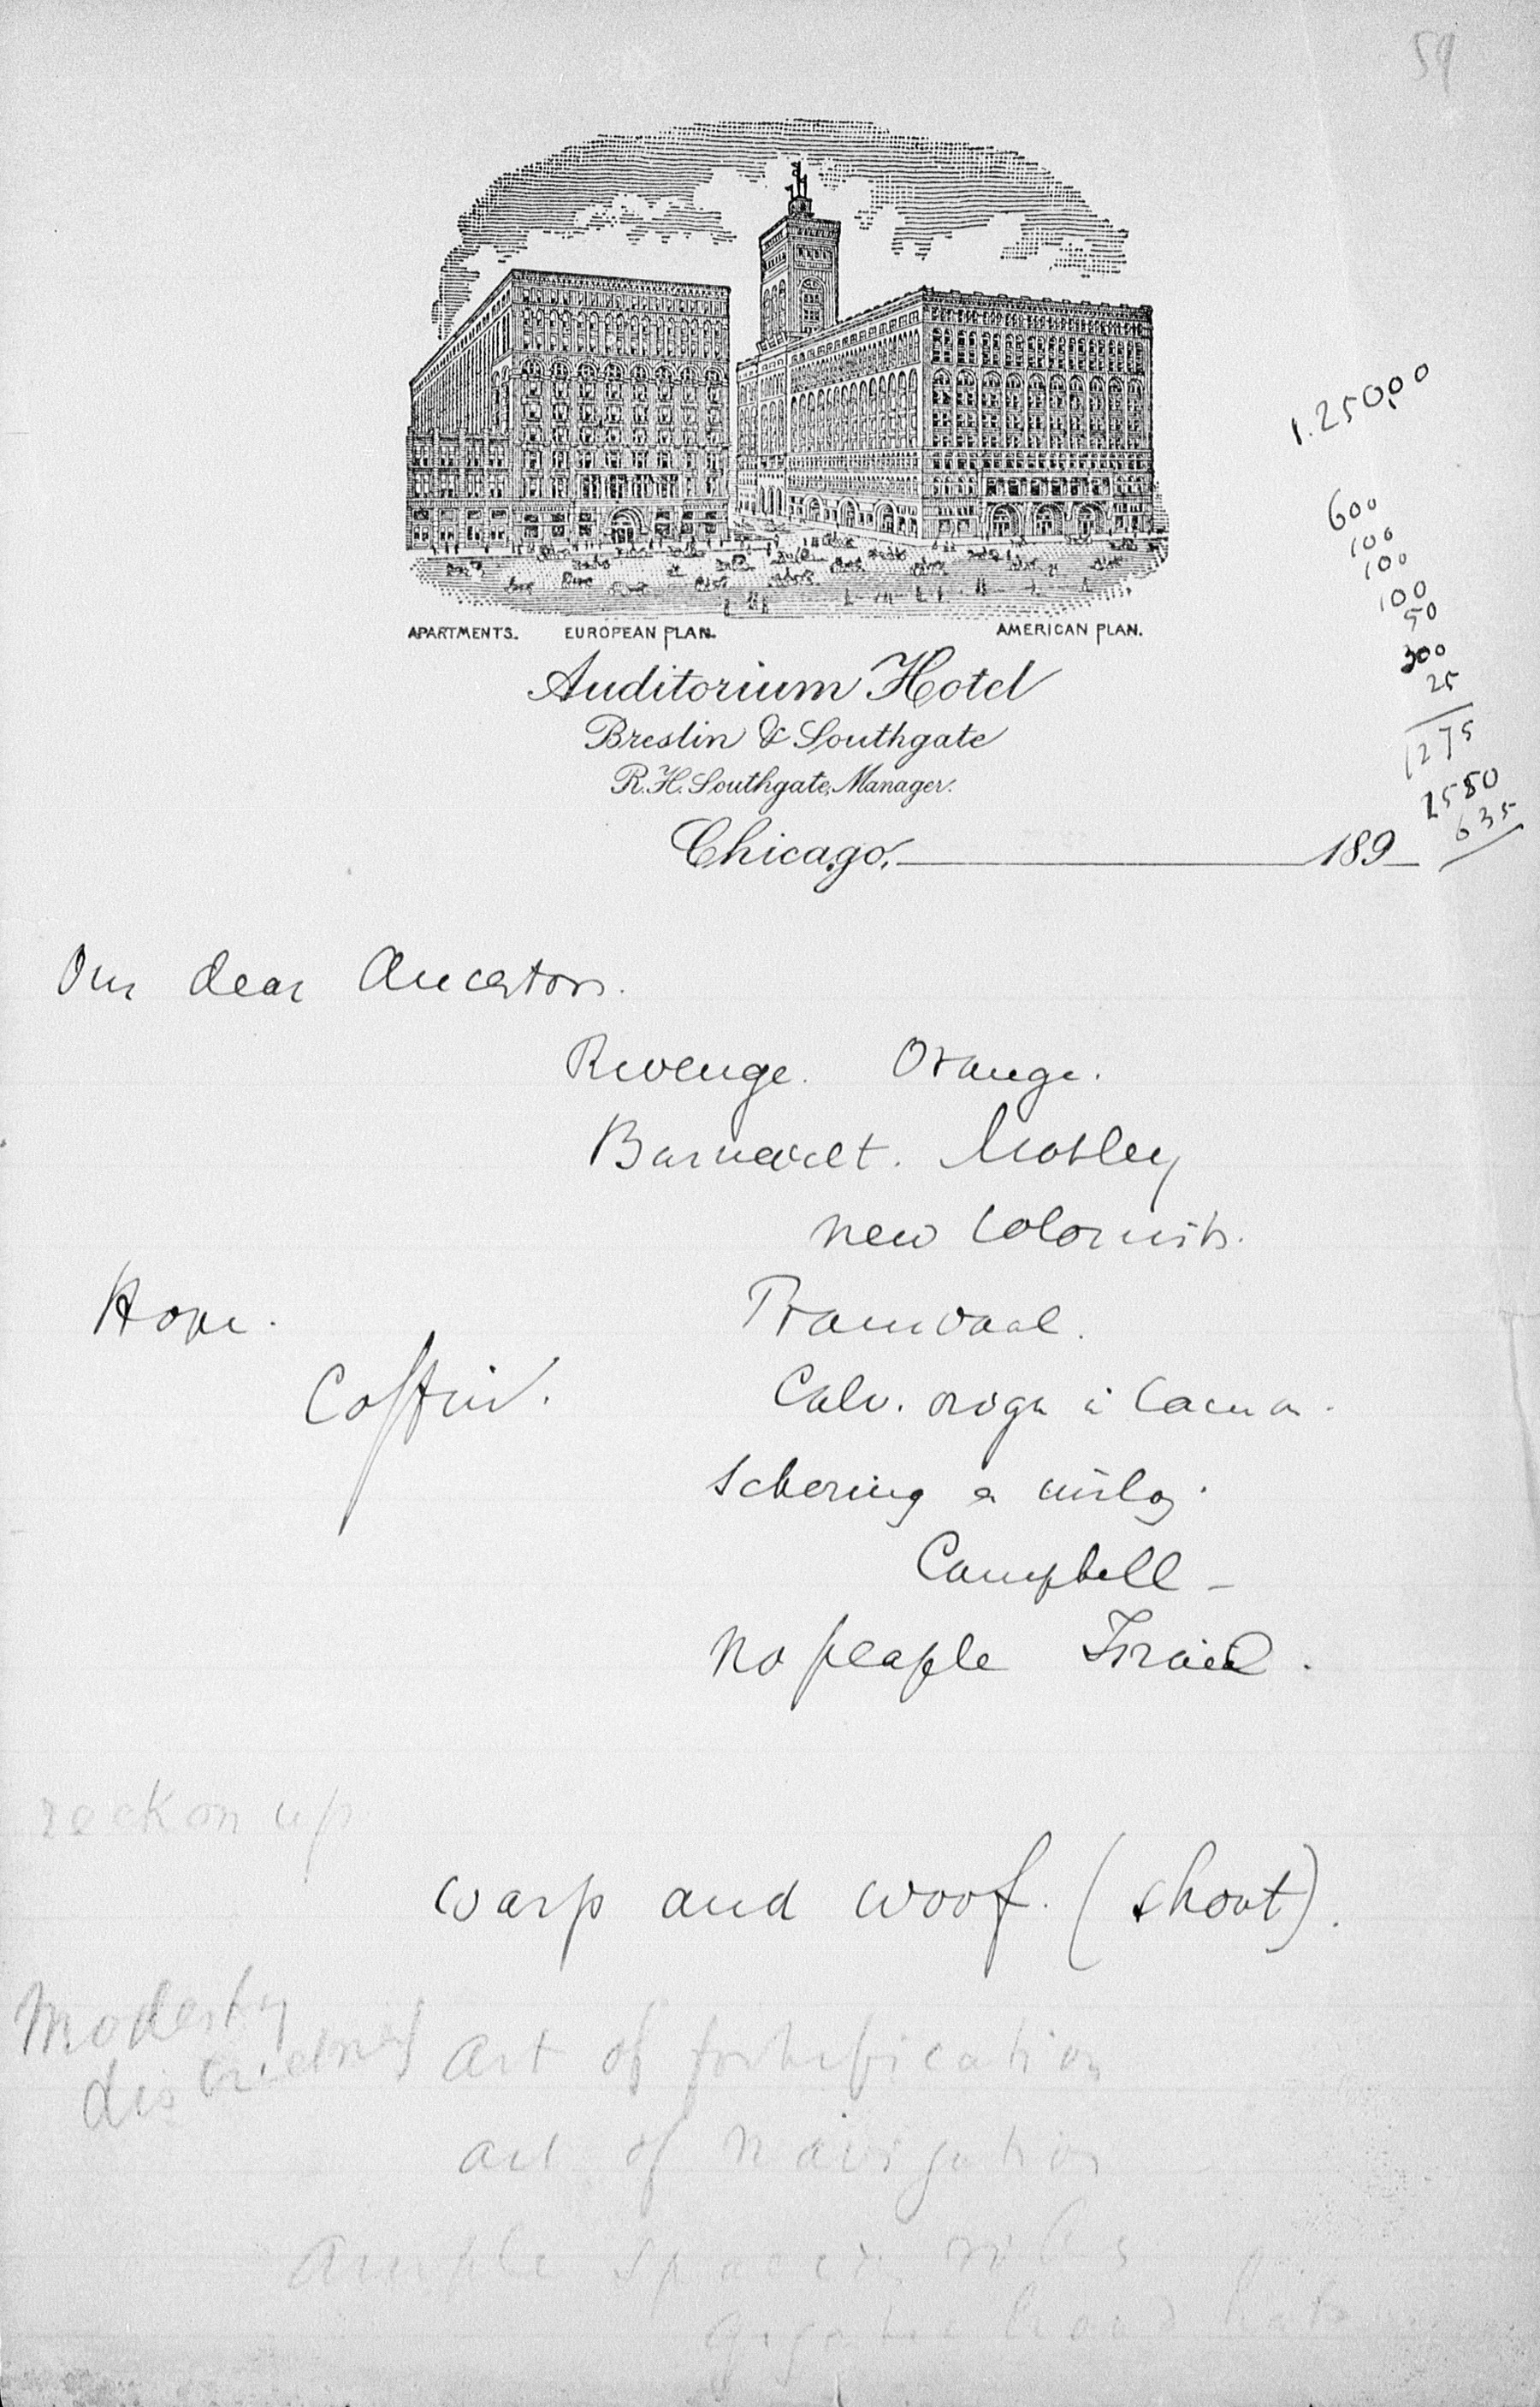 59
1.250,00
600
100
100
100
50
300
25
1275
2550
635
APARTMENTS. EUROPEAN PLAN. AMERICAN PLAN.
Auditorium Hotel
Breslin & Southgate
R.H. Southgate, Manager.
Chicago, 189
Our dear Ancestors.
Revenge. Orange.
Barnevelt. Motley
new Colonists.
Hope. Transvaal.
Coffin. Calv.
Schering a
Campbell -
no people Israel.
reckon up
warp and woof. (shoot).
Modesty
art of fortification
art of navigation
ample